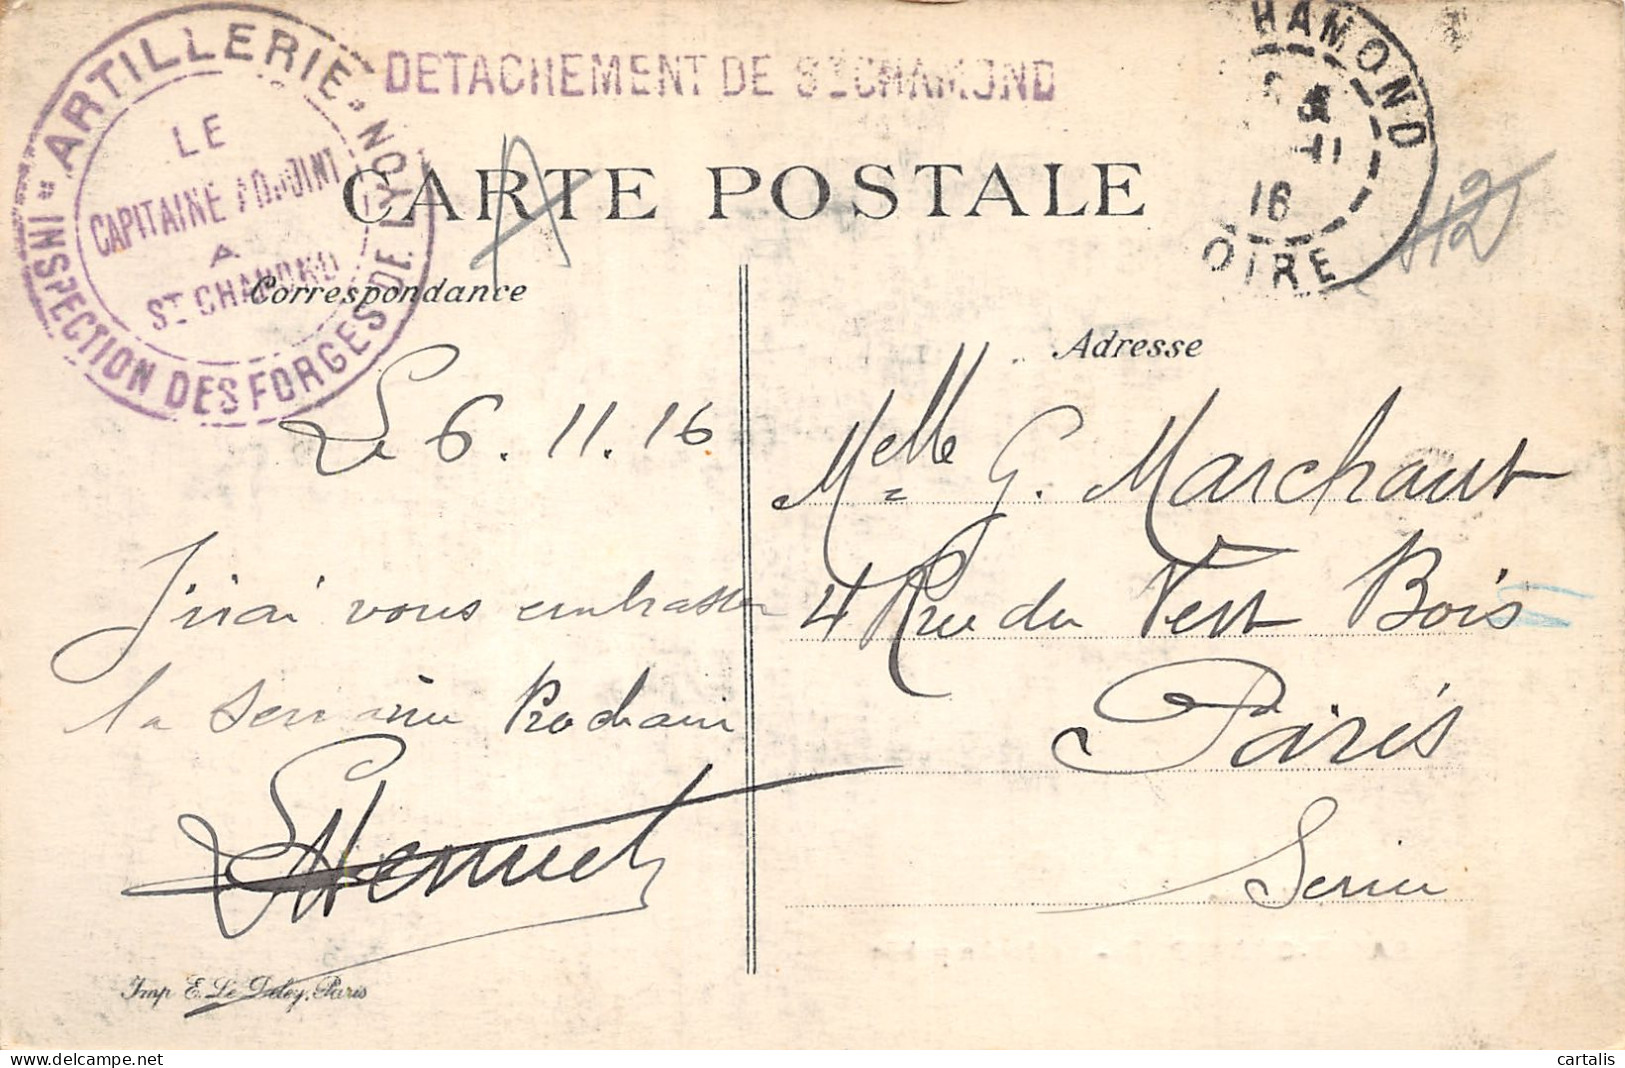 "ARTILLERIE"
INSPECTION DES FORGES DE LYON
LE
CAPITAINE ADJOINT
A
ST CHAMOND
DETACHEMENT DE ST CHAMOND
HAMOND
11
16
OIRE
CARTE POSTALE
Correspondance
Adresse
Le 6. 11. 16
J'irai vous embrasser
la semaine Prochain
Melle G. Marchant
4 Rue du Vert Bois
Paris
Seine
Imp E. Le Deley, Paris
cartalis